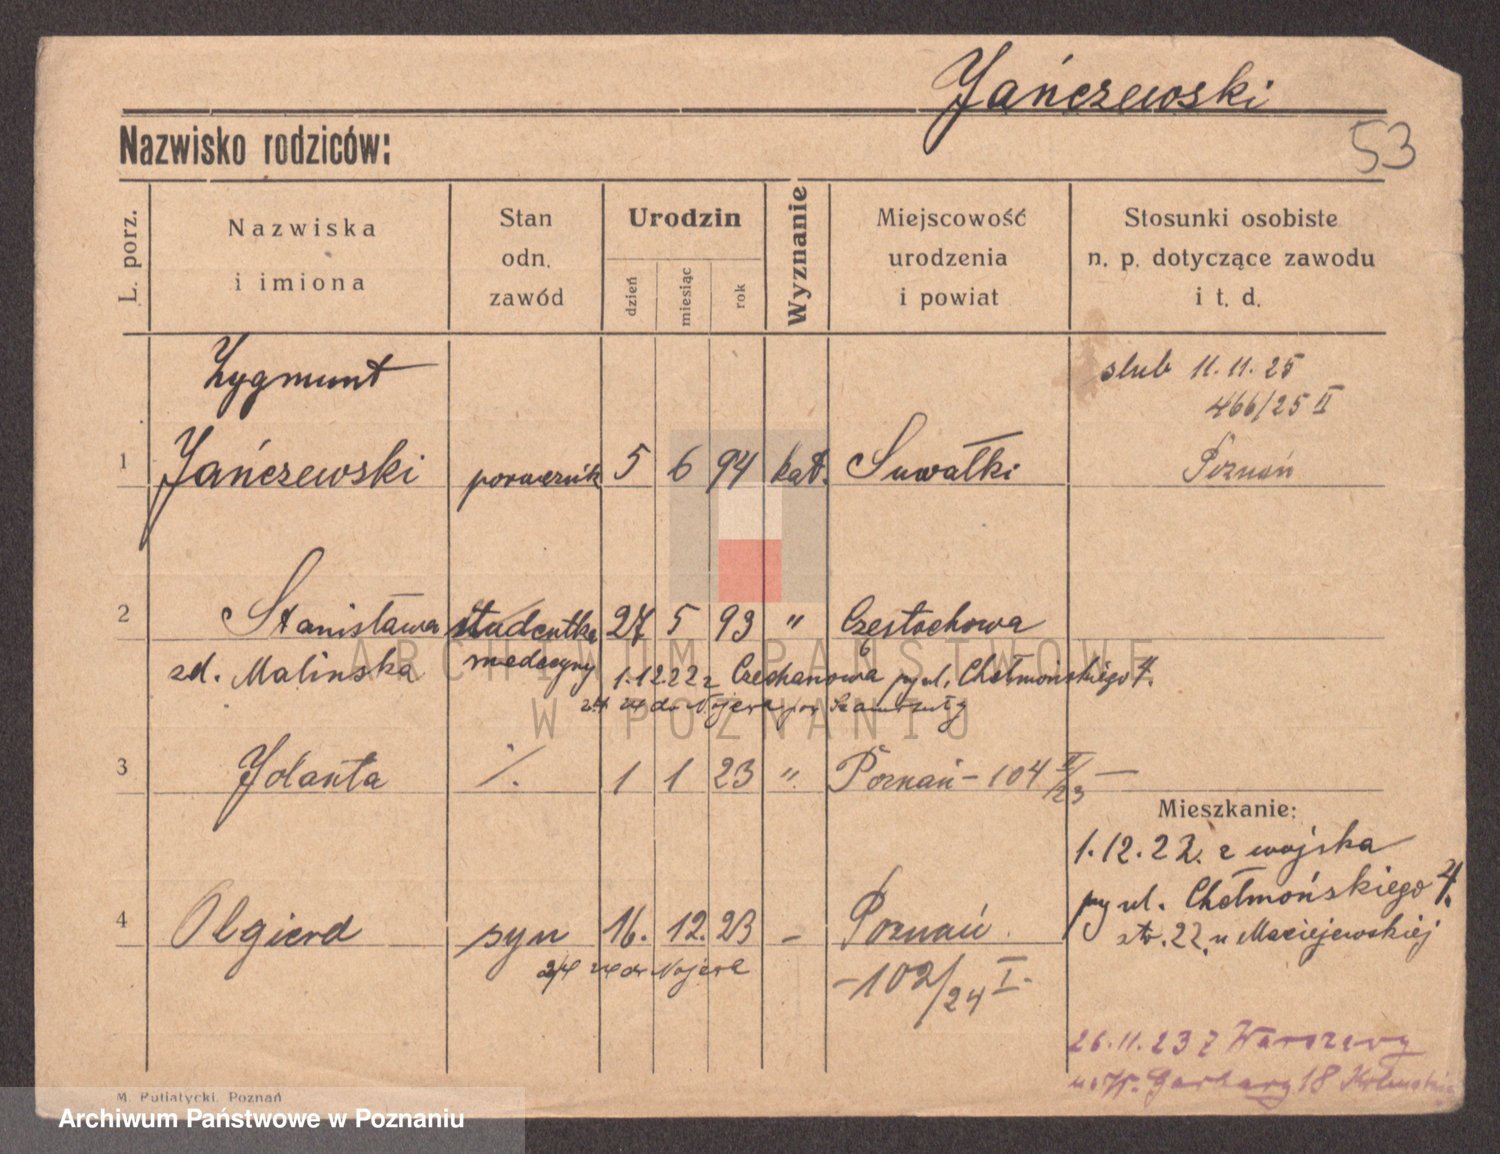 Jańczewski
53
Nazwisko rodziców:
L. porz.
Nazwiska
i imiona
Stan
odn.
zawód
Urodzin
dzień
miesiąc
rok
Wyznanie
Miejscowość
urodzenia
i powiat
Stosunki osobiste
n. p. dotyczące zawodu
i t. d.
Zygmunt
ślub 11.11.25
466/25 II
1 Jańczewski porucznik 5 6 94 kat. Suwałki Poznań
2 Stanisława studentka 27 5 93 " Częstochowa
zd. Malinska medecyny 1.12.22 z Czechanowa ul. Chełmońskiego 4.
3 Jolanta ·/. 1 1 23 " Poznań - 104 II/23 —
Mieszkanie:
1.12.22. z wojska
ul. Chełmońskiego 4.
str. 22 u Maciejewskiej
4 Olgierd syn 16. 12. 23 - Poznań
-102/24 I-
26.11.23 z Warszawy
Garbary 18
M. Putiatycki, Poznań
ARCHIWUM PAŃSTWOWE
W POZNANIU
Archiwum Państwowe w Poznaniu